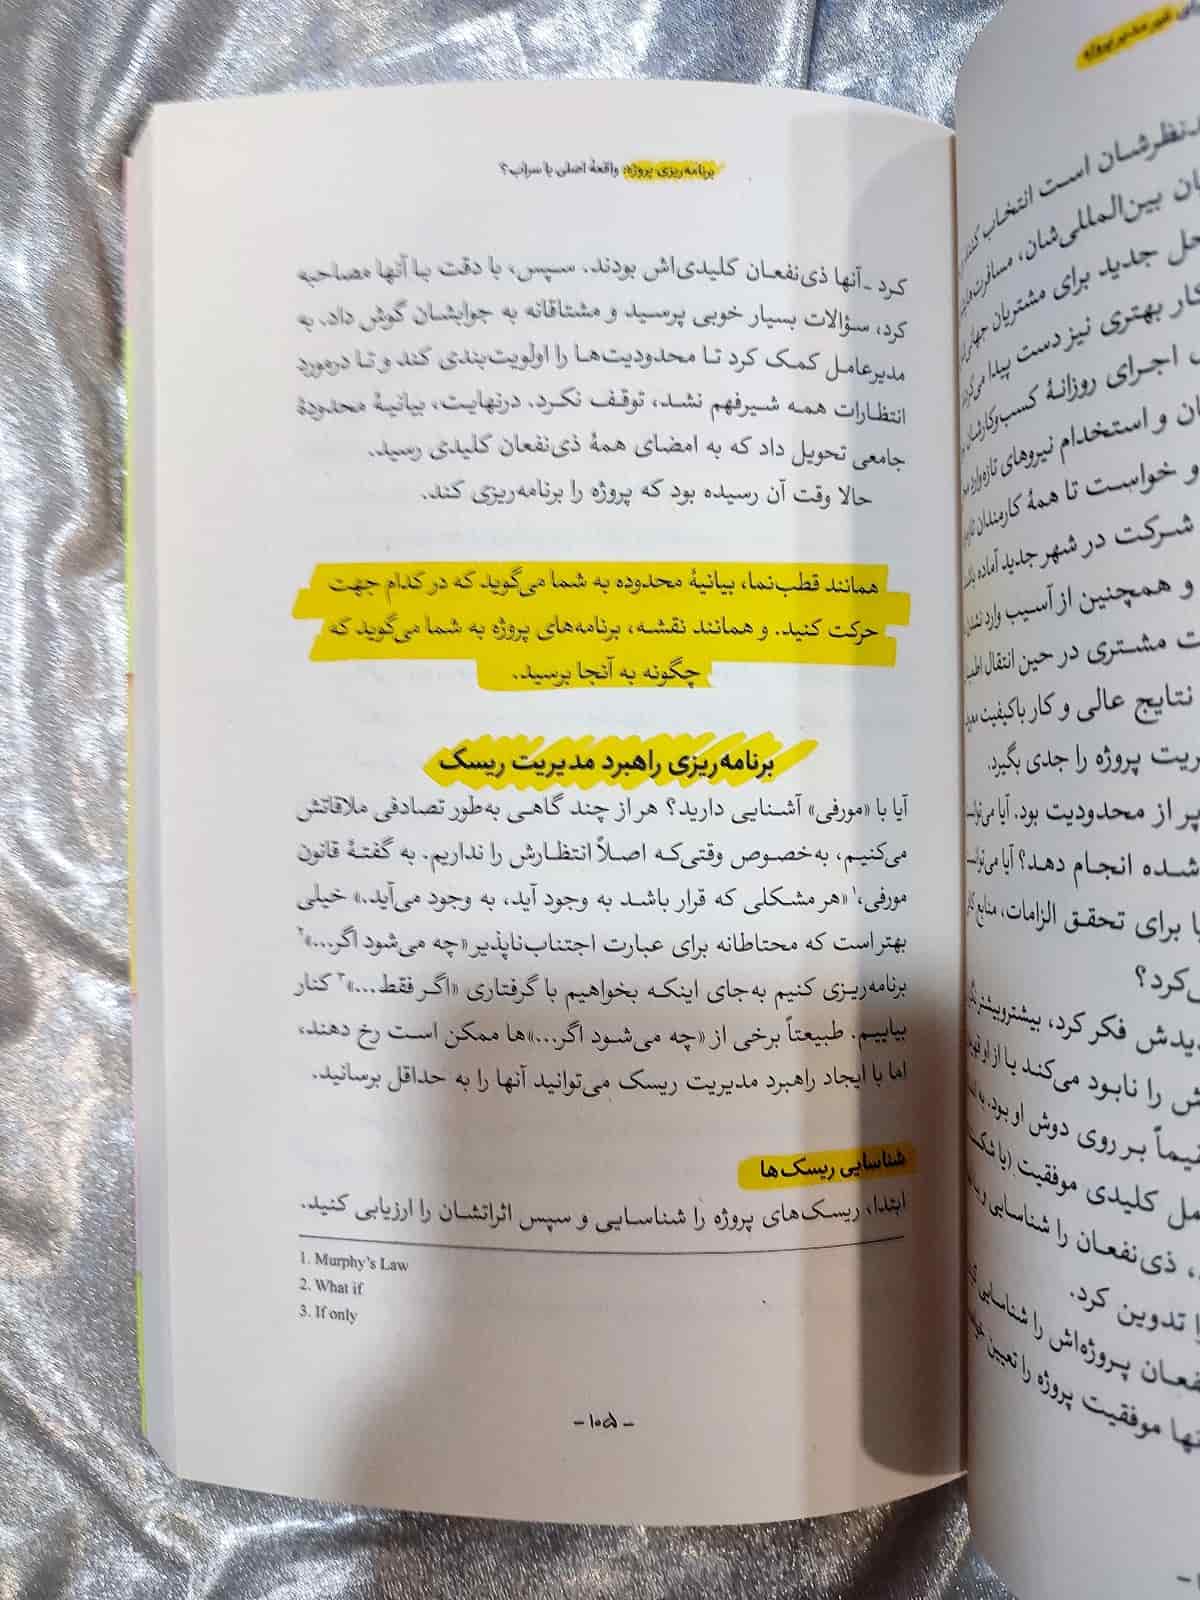 برنامه‌ریزی پروژه: واقعهٔ اصلی یا سراب؟
کرد ـ آنها ذی‌نفعان کلیدی‌اش بودند. سپس، با دقت با آنها مصاحبه
کرد، سؤالات بسیار خوبی پرسید و مشتاقانه به جوابشان گوش داد. به
مدیرعامل کمک کرد تا محدودیت‌ها را اولویت‌بندی کند و تا درمورد
انتظارات همه شیرفهم نشد، توقف نکرد. درنهایت، بیانیهٔ محدودهٔ
جامعی تحویل داد که به امضای همهٔ ذی‌نفعان کلیدی رسید.
حالا وقت آن رسیده بود که پروژه را برنامه‌ریزی کند.
همانند قطب‌نما، بیانیهٔ محدوده به شما می‌گوید که در کدام جهت
حرکت کنید. و همانند نقشه، برنامه‌های پروژه به شما می‌گوید که
چگونه به آنجا برسید.
برنامه‌ریزی راهبرد مدیریت ریسک
آیا با «مورفی» آشنایی دارید؟ هر از چند گاهی به‌طور تصادفی ملاقاتش
می‌کنیم، به‌خصوص وقتی‌که اصلاً انتظارش را نداریم. به گفتهٔ قانون
مورفی،۱ «هر مشکلی که قرار باشد به وجود آید، به وجود می‌آید.» خیلی
بهتر است که محتاطانه برای عبارت اجتناب‌ناپذیر «چه می‌شود اگر...»۲
برنامه‌ریزی کنیم به‌جای اینکه بخواهیم با گرفتاری «اگر فقط...»۳ کنار
بیاییم. طبیعتاً برخی از «چه می‌شود اگر...»ها ممکن است رخ دهند،
اما با ایجاد راهبرد مدیریت ریسک می‌توانید آنها را به حداقل برسانید.
شناسایی ریسک‌ها
ابتدا، ریسک‌های پروژه را شناسایی و سپس اثراتشان را ارزیابی کنید.
1. Murphy's Law
2. What if
3. If only
- ۱۰۵ -
غیر مدیر پروژه
نظرشان است انتخاب کنند
بین‌المللی‌شان، مسافرت‌های
حل جدید برای مشتریان جهانی
کار بهتری نیز دست پیدا می‌کرد
اجرای روزانهٔ کسب‌وکارشان
و استخدام نیروهای تازه‌وارد
و خواست تا همهٔ کارمندان
شرکت در شهر جدید آماده
و همچنین از آسیب وارد نشدن
مشتری در حین انتقال
نتایج عالی و کار باکیفیت
پروژه را جدی بگیرد.
پر از محدودیت بود. آیا
شده انجام دهد؟ آیا
برای تحقق الزامات، منابع
می‌کرد؟
فکر کرد، بیشتروبیشتر
را نابود می‌کند یا از او
بر روی دوش او بود.
کلیدی موفقیت (یا
ذی‌نفعان را شناسایی
تدوین کرد.
پروژه‌اش را شناسایی
موفقیت پروژه را تعیین